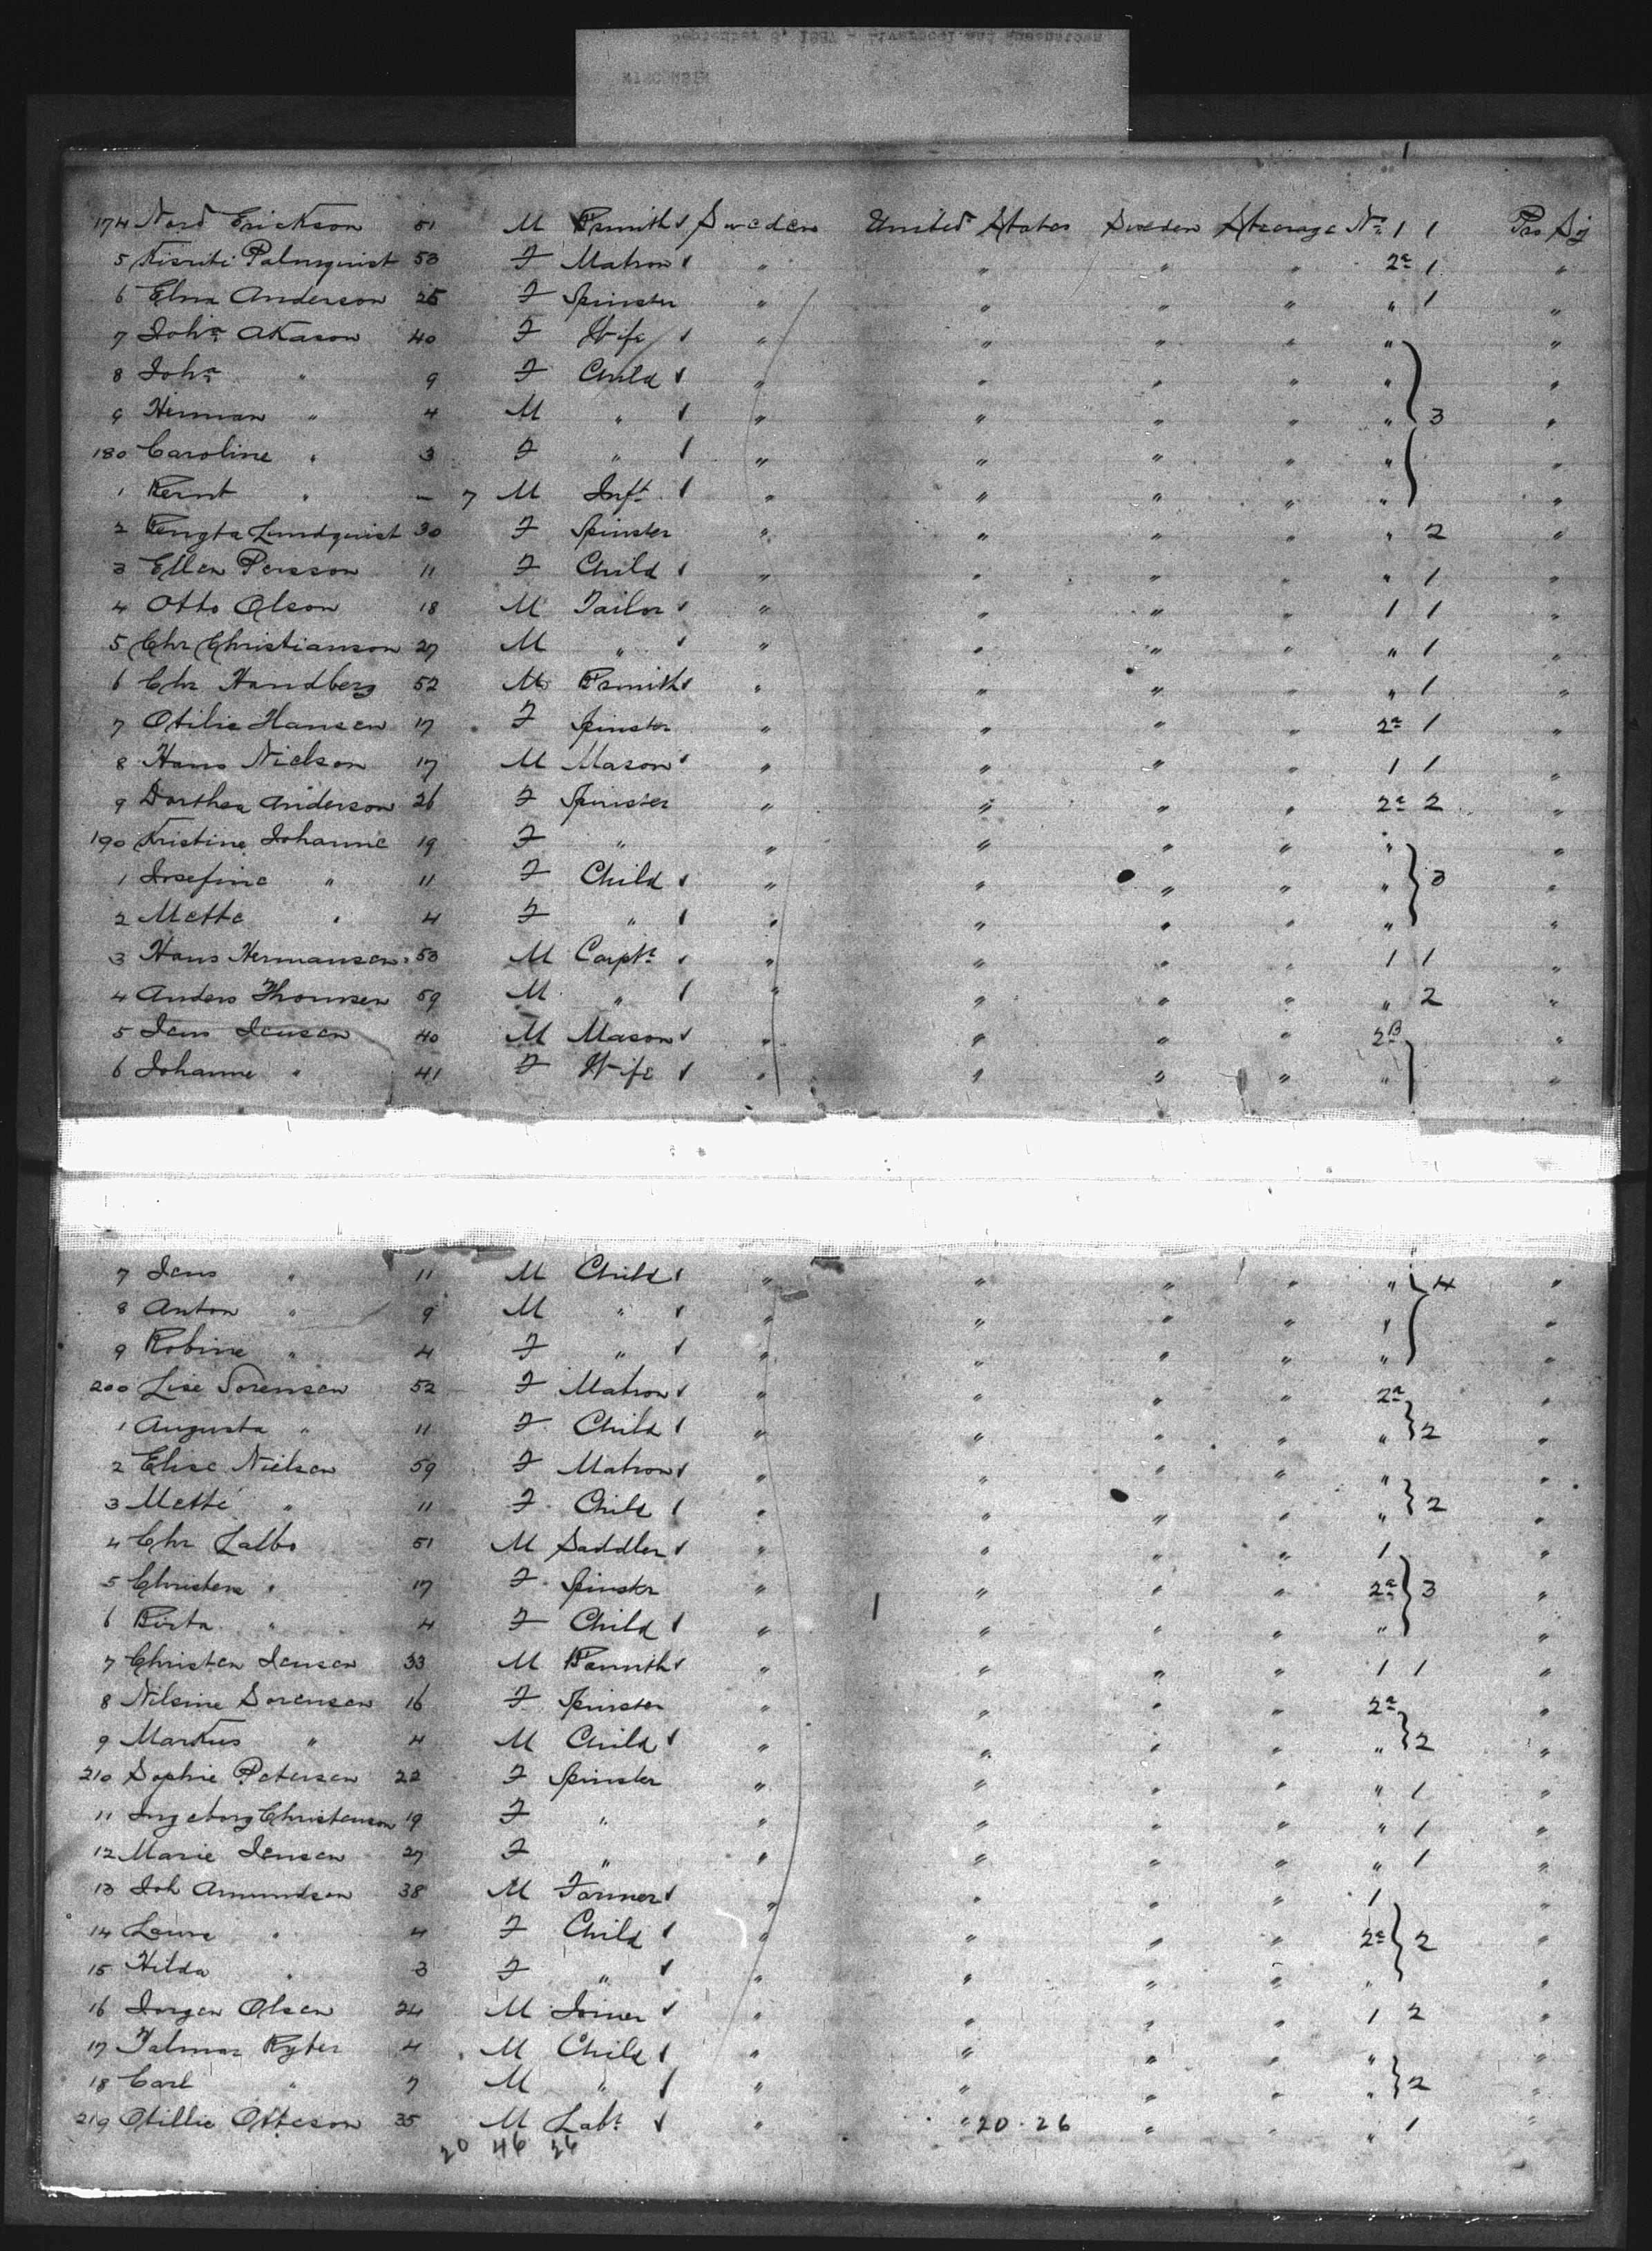 September 8, 1887 - Liverpool and Queenstown
WISCONSIN
174 Nord Erickson 51 M Bsmith Sweden United States Sweden Steerage No 1 1 Pro Sj
5 Palmquist 53 F Matron " " " " 2a 1 "
6 Elna Anderson 25 F Spinster " " " " " 1 "
7 Joha Akason 40 F Wife " " " " " "
8 Joha " 9 F Child " " " " " "
9 Herman " 4 M " " " " " " 3 "
180 Caroline " 3 F " " " " " " "
1 Bernt " - 7 M Inft " " " " " "
2 Bengta Lundquist 30 F Spinster " " " " " 2 "
3 Ellen Persson 11 F Child " " " " " 1 "
4 Otto Olson 18 M Tailor " " " " 1 1 "
5 Chr Christianson 27 M " " " " " " 1 "
6 Chr Handberg 52 M Bsmith " " " " " 1 "
7 Otilie Hansen 17 F Spinster " " " " 2a 1 "
8 Hans Nielson 17 M Mason " " " " 1 1 "
9 Dorthea Anderson 26 F Spinster " " " " 2a 2 "
190 Kristine Johanne 19 F " " " " " " "
1 Josefine " 11 F Child " " " " " 3 "
2 Mette " 4 F " " " " " " "
3 Hans Hermansen 53 M Carptr " " " " 1 1 "
4 Anders Thomsen 59 M " " " " " " 2 "
5 Jens Jensen 40 M Mason " " " " 2B "
6 Johanne " 41 F Wife " " " " " "
7 Jens " 11 M Child " " " " " 4 "
8 Anton " 9 M " " " " " " "
9 Robine " 4 F " " " " " " "
200 Lise Sorensen 52 F Matron " " " " 2a "
1 Augusta " 11 F Child " " " " " 2 "
2 Elise Nielsen 59 F Matron " " " " " "
3 Mette " 11 F Child " " " " " 2 "
4 Chr Lalbo 51 M Saddler " " " " 1 "
5 Christene " 17 F Spinster " " " " 2a 3 "
6 Birta " 4 F Child " " " " " "
7 Christen Jensen 33 M Bsmith " " " " 1 1 "
8 Nilsine Sorensen 16 F Spinster " " " " 2a "
9 Markus " 4 M Child " " " " " 2 "
210 Sophie Petersen 22 F Spinster " " " " " 1 "
11 Ingeborg Christenson 19 F " " " " " " 1 "
12 Marie Jensen 27 F " " " " " " 1 "
13 Joh Amundsen 38 M Farmer " " " " 1 "
14 Laura " 4 F Child " " " " 2a 2 "
15 Hilda " 3 F " " " " " " "
16 Jorgen Olsen 24 M Joiner " " " " 1 2 "
17 Talmar Ryter 4 M Child " " " " " "
18 Carl " 7 M " " " " " " 2 "
219 Otillie Otteson 35 M Labr " " 20.26 " " " 1 "
20 46 26